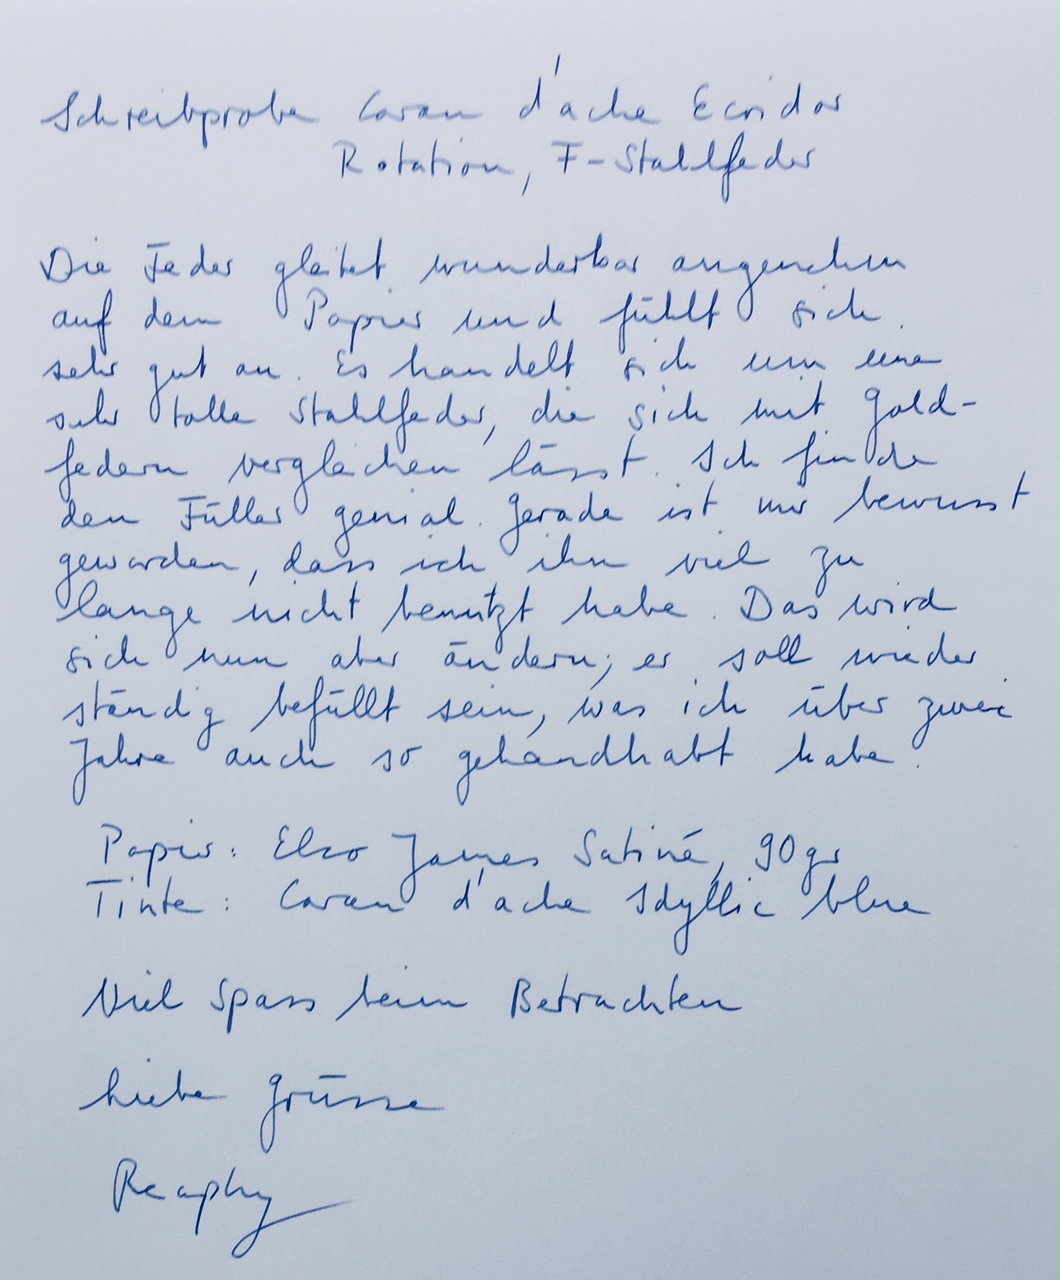 Schreibprobe Caran d'ache Ecridor
Rotation, F-Stahlfeder
Die Feder gleitet wunderbar angenehm
auf dem Papier und fühlt sich
sehr gut an. Es handelt sich um eine
sehr tolle Stahlfeder, die sich mit Gold-
federn vergleichen lässt. Ich finde
den Füller genial. Gerade ist mir bewusst
geworden, dass ich ihn viel zu
lange nicht benutzt habe. Das wird
sich nun aber ändern; er soll wieder
ständig befüllt sein, was ich über zwei
Jahre auch so gehandhabt habe.
Papier: Elco James Satiné, 90gr
Tinte: Caran d'ache Idyllic blue
Viel Spass beim Betrachten
Liebe Grüsse
Reaphy